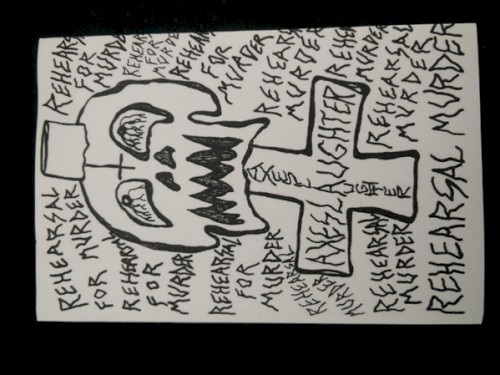 REHEARSAL
FOR
MURDER
REHEARSAL
FOR
MURDER
REHEARSAL
FOR
MURDER
REHEARSAL
MURDER
REHEARSAL
MURDER
REHEARSAL
MURDER
AXESLAUGHTER
AXESLAUGHTER
REHEARSAL
FOR
MURDER
REHEARSAL
FOR
MURDER
REHEARSAL
FOR
MURDER
REHEARSAL
MURDER
REHEARSAL
MURDER
REHEARSAL MURDER